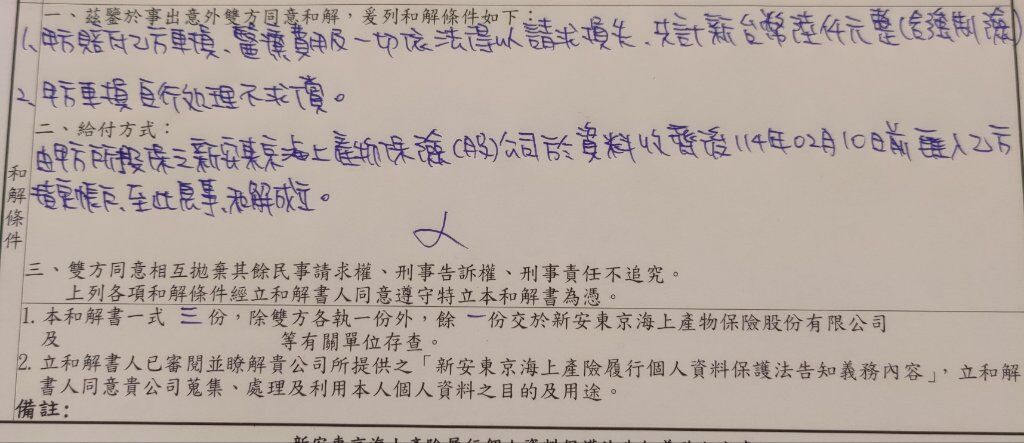 一、茲鑒於事出意外雙方同意和解，爰列和解條件如下：
1、甲方賠付乙方車損、醫療費用及一切依法得以請求損失，共計新台幣陸仟元整(含強制險)
2、甲方車損自行処理不求償。
二、給付方式：
由甲方所投保之新安東京海上產物保險(股)公司於資料收齊後114年02月10日前匯入乙方
指定帳戶、至此息事、和解成立。
和解條件
三、雙方同意相互拋棄其餘民事請求權、刑事告訴權、刑事責任不追究。
上列各項和解條件經立和解書人同意遵守特立本和解書為憑。
1. 本和解書一式 三 份，除雙方各執一份外，餘 一 份交於新安東京海上產物保險股份有限公司
及 等有關單位存查。
2. 立和解書人已審閱並瞭解貴公司所提供之「新安東京海上產險履行個人資料保護法告知義務內容」，立和解
書人同意貴公司蒐集、處理及利用本人個人資料之目的及用途。
備註：